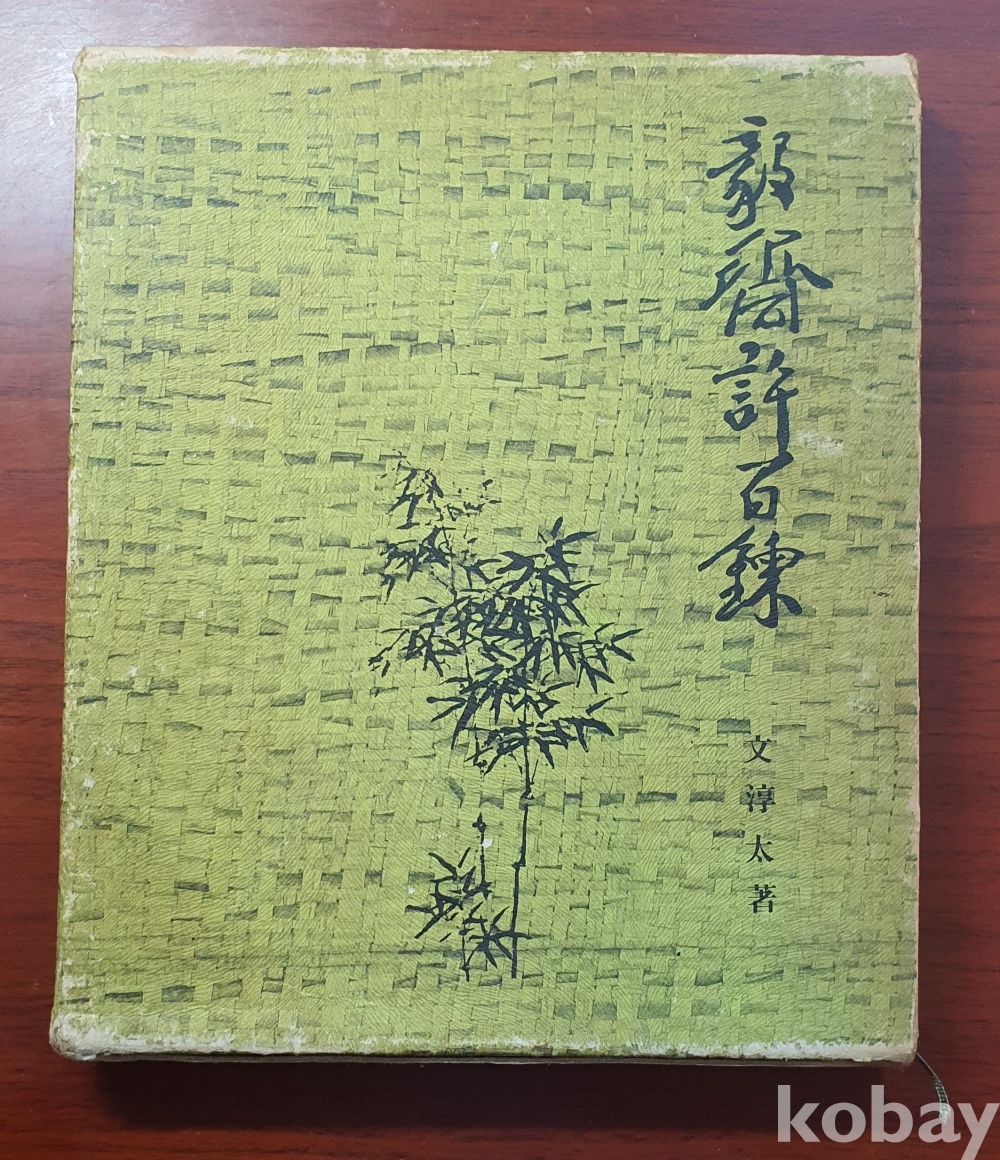 毅齋許百鍊
文淳太著
kobay